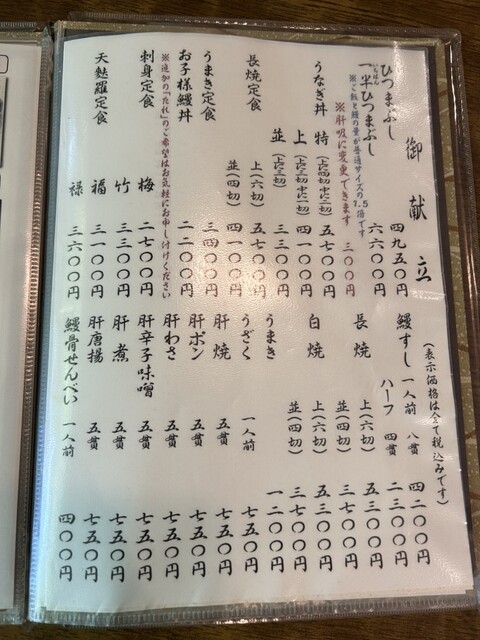 御献立
(表示価格は全て税込みです)
ひつまぶし 四九五〇円
一半ひつまぶし 六六〇〇円
いちはん
※ご飯と鰻の量が普通サイズの1.5倍です
※肝吸に変更できます 三〇〇円
うなぎ丼 特(上に四切中に二切) 五七〇〇円
上(上に三切中に一切) 四一〇〇円
並(上に三切) 三三〇〇円
長焼定食 上(六切) 五七〇〇円
並(四切) 四一〇〇円
うまき定食 三四〇〇円
お子様鰻丼 二二〇〇円
※追加の「たれ」のご希望はお気軽にお申し付けください
刺身定食 梅 二七〇〇円
竹 三三〇〇円
天麩羅定食 福 三一〇〇円
禄 三六〇〇円
鰻すし 一人前 八貫 四二〇〇円
ハーフ 四貫 二三〇〇円
長焼 上(六切) 五三〇〇円
並(四切) 三七〇〇円
白焼 上(六切) 五三〇〇円
並(四切) 三七〇〇円
うまき 一二〇〇円
うざく 一人前 七五〇円
肝焼 五貫 七五〇円
肝ポン 五貫 七五〇円
肝わさ 五貫 七五〇円
肝辛子味噌 五貫 七五〇円
肝煮 五貫 七五〇円
肝唐揚 五貫 七五〇円
鰻骨せんべい 一人前 四〇〇円